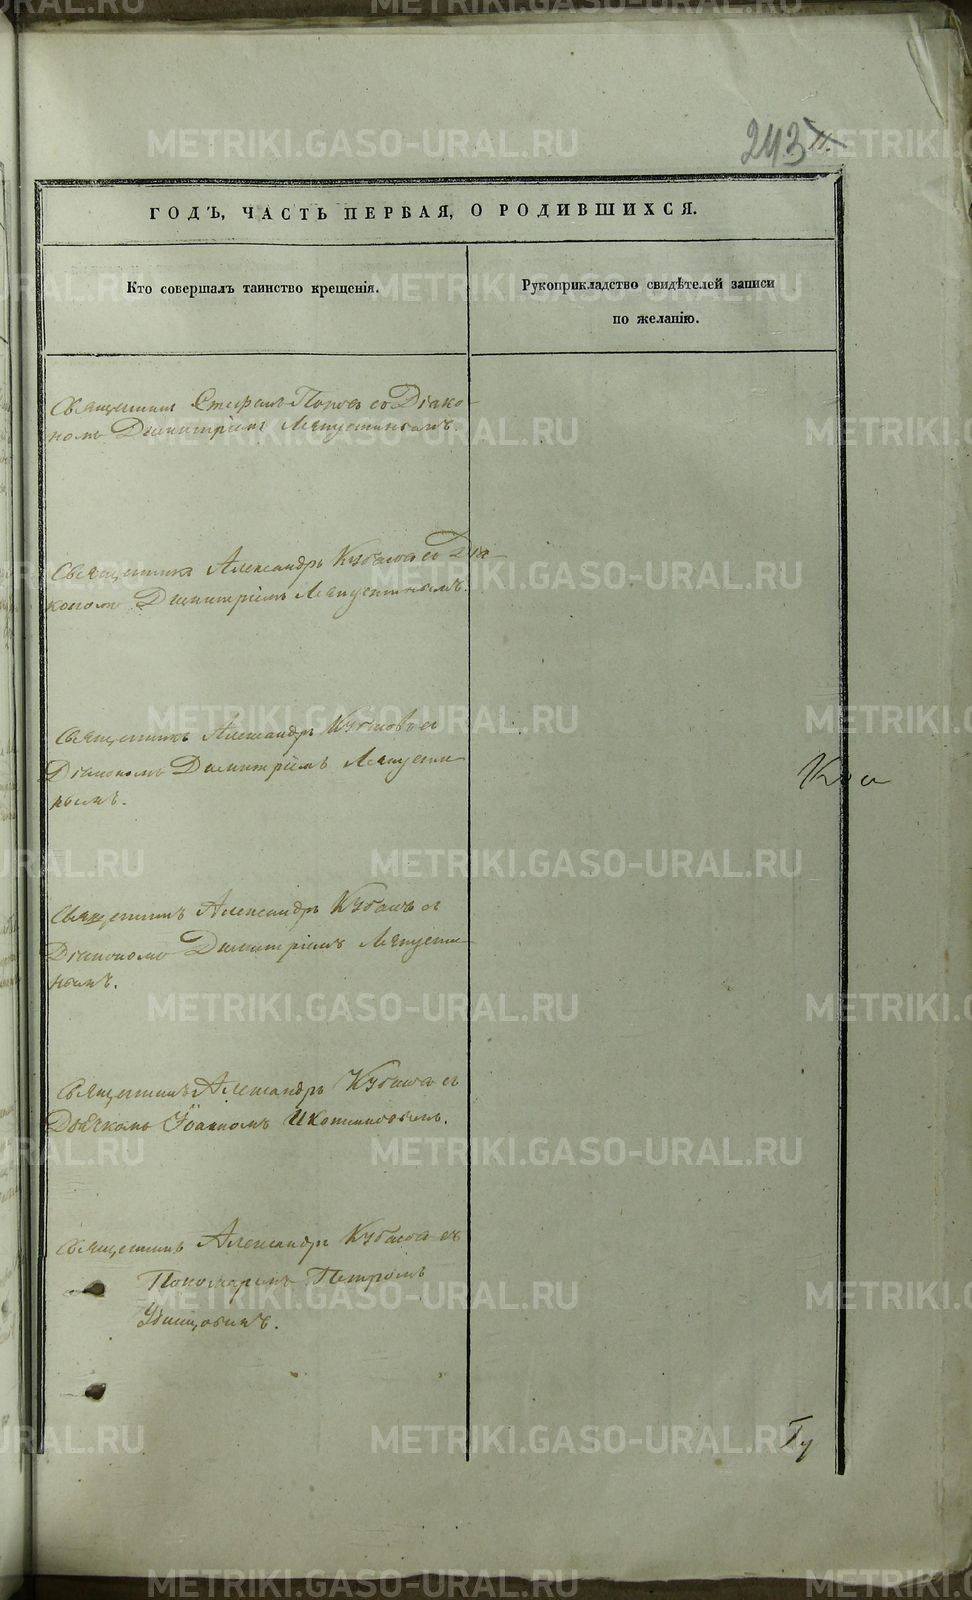 243
11.
ГОДЪ, ЧАСТЬ ПЕРВАЯ, О РОДИВШИХСЯ.
Кто совершалъ таинство крещенія.
Рукоприкладство свидѣтелей записи
по желанію.
Священникъ Стефанъ Поповъ со Діако-
номъ Димитріемъ Ляпустинымъ.
Священникъ Александръ Кубасовъ съ Діа-
кономъ Димитріемъ Ляпустинымъ.
Священникъ Александръ Кубасовъ съ
Діакономъ Димитріемъ Ляпусти-
нымъ.
Священникъ Александръ Кубасовъ съ
Діакономъ Димитріемъ Ляпусти-
нымъ.
Священникъ Александръ Кубасовъ съ
Дьячкомъ Іоанномъ
Священникъ Александръ Кубасовъ съ
Пономаремъ Петромъ
METRIKI.GASO-URAL.RU